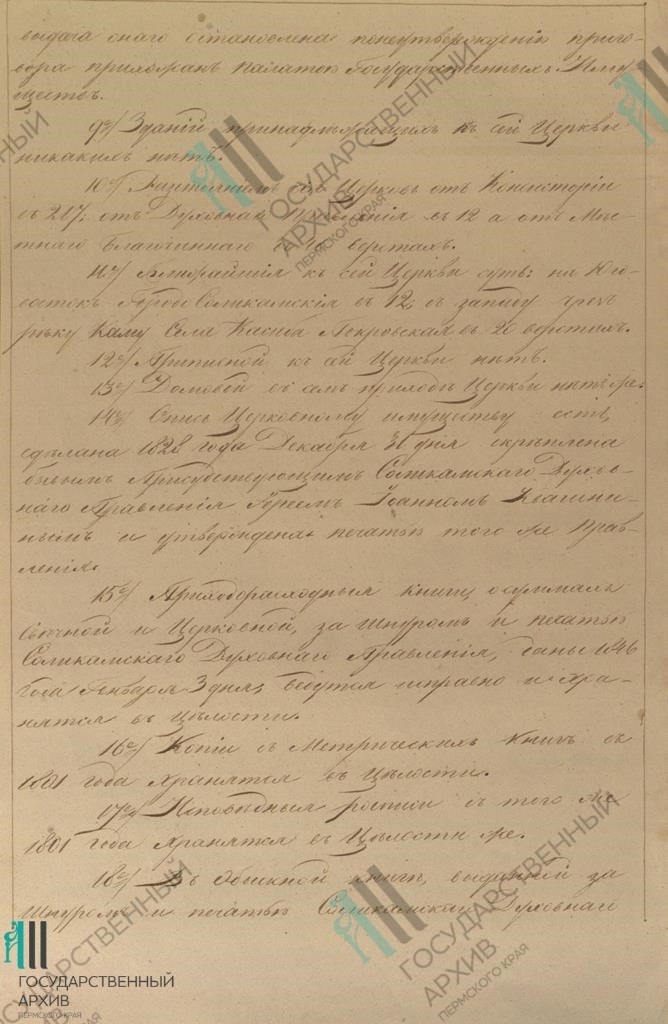 выдача онаго остановлена понеутвержденію приго-
вора прихожанъ Палатою Государственныхъ Иму-
ществъ.
9е/ Зданій принадлежащихъ къ сей Церкви
никакихъ нѣтъ.
10е/ Разстояніемъ сія Церковь отъ Консисторіи
въ 217, отъ Духовнаго Правленія въ 12 а отъ Мѣс-
тнаго Благочиннаго въ верстахъ.
11е/ Ближайшія къ сей Церкви суть: на Юго-
востокъ Града Соликамскія въ 12, съ западу чрезъ
рѣку Каму Села Касиба Покровская въ 20 верстахъ.
12е/ Приписной къ сей Церкви нѣтъ.
13е/ Домовой въ семъ приходѣ Церкви нѣтъ же.
14е/ Опись Церковному имуществу есть,
сдѣлана 1828 года Декабря дня скрѣплена
бывымъ Присудствующимъ Соликамскаго Духов-
наго Правленія Іереемъ Іоанномъ
и утверждена печатью того же Прав-
ленія.
15е/ Приходорасходныя книги, о суммахъ
свѣчной и Церковной, за шнуромъ и печатью
Соликамскаго Духовнаго Правленія, даны 1846
года Генваря 3 дня, ведутся исправно и хра-
нятся въ цѣлости.
16е/ Копіи съ Метрическихъ книгъ съ
1801 года хранятся въ Цѣлости.
17е/ Исповѣдныя росписи съ того же
1801 года хранятся въ Цѣлости же.
18е/ Въ Обыскной книгѣ, выданной за
шнуромъ и печатью Соликамскаго Духовнаго
ГОСУДАРСТВЕННЫЙ
АРХИВ
ПЕРМСКОГО КРАЯ